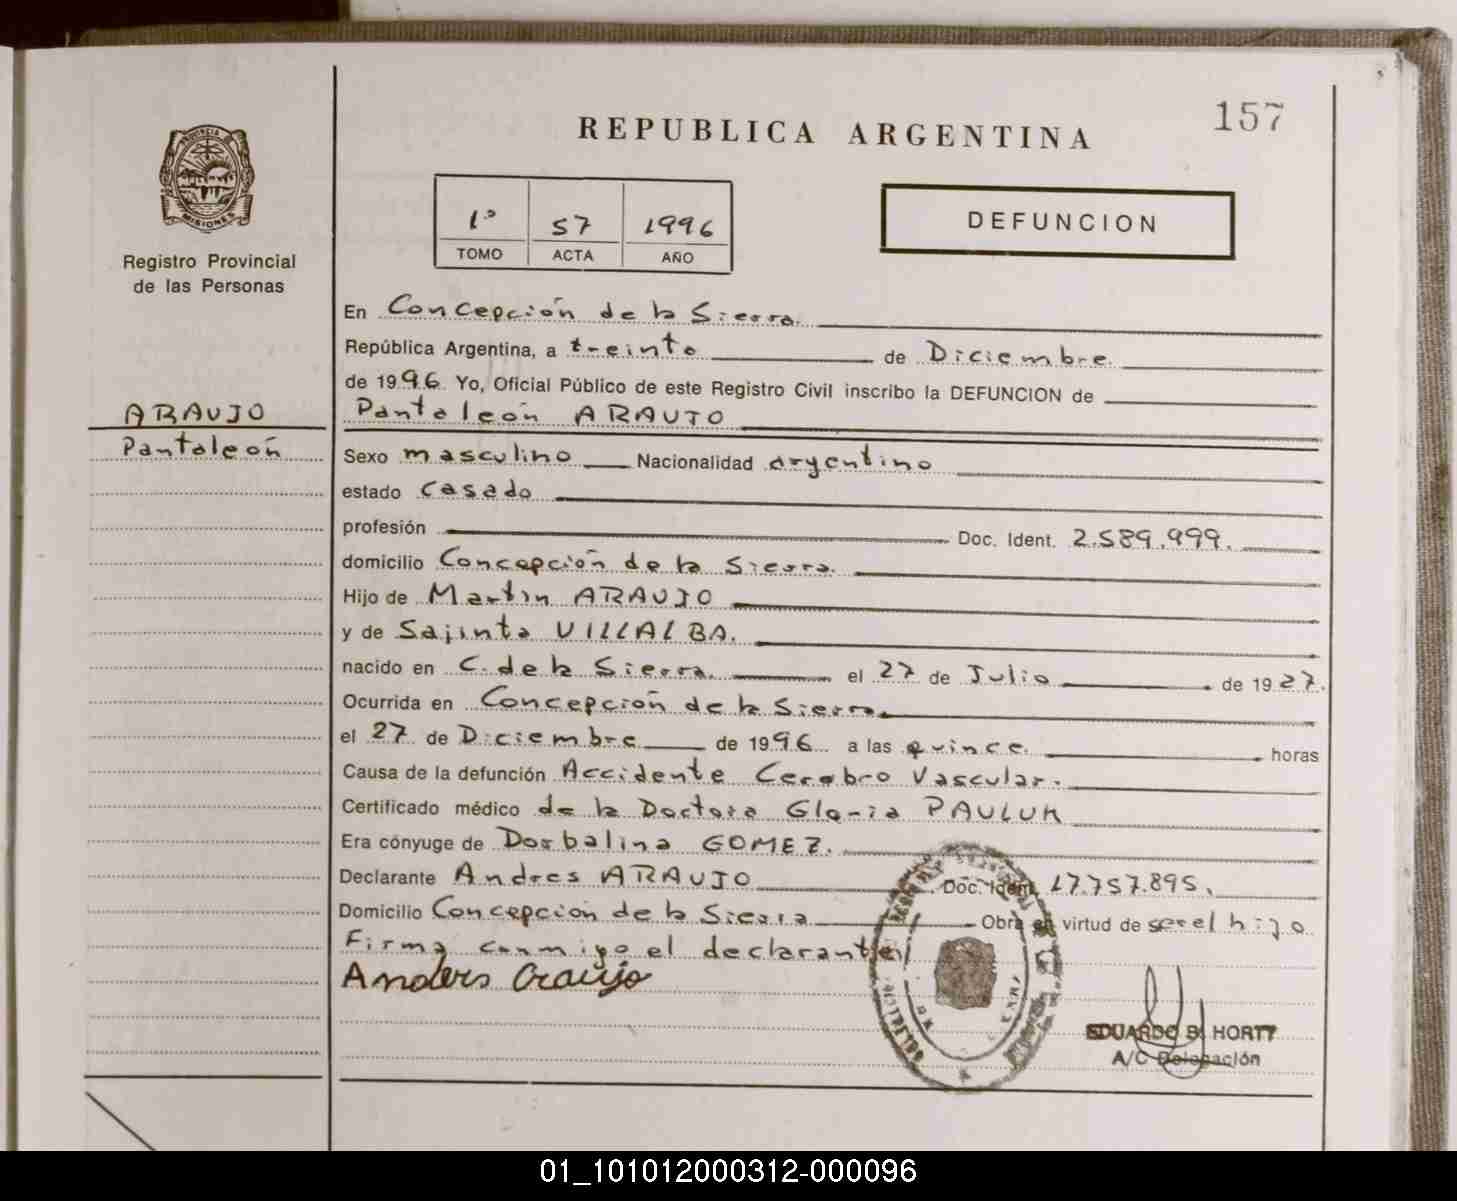 157
REPUBLICA ARGENTINA
PROVINCIA
MISIONES
Registro Provincial
de las Personas
1º 57 1996
TOMO ACTA AÑO
DEFUNCION
ARAUJO
Pantaleón
En Concepción de la Sierra.
República Argentina, a treinta de Diciembre.
de 1996. Yo, Oficial Público de este Registro Civil inscribo la DEFUNCION de
Pantaleón ARAUJO
Sexo masculino Nacionalidad argentino
estado casado
profesión Doc. Ident. 2.589.999.
domicilio Concepción de la Sierra.
Hijo de Martin ARAUJO
y de Sajinta VILLALBA.
nacido en C. de la Sierra. el 27 de Julio de 1927.
Ocurrida en Concepción de la Sierra.
el 27 de Diciembre de 1996 a las quince. horas
Causa de la defunción Accidente Cerebro Vascular.
Certificado médico de la Doctora Gloria PAULUK
Era cónyuge de Dorbalina GOMEZ.
Declarante Andres ARAUJO Doc. Ident. 17.757.895.
Domicilio Concepción de la Sierra Obra en virtud de ser el hijo
Firma conmigo el declarante
Anders Araujo
EDUARDO B. HORTT
A/C Delegación
01_101012000312-000096